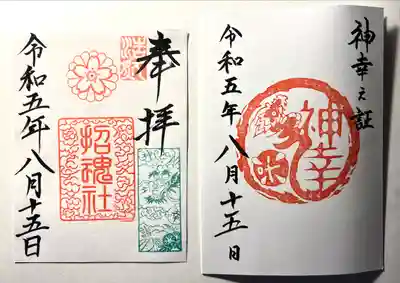 奉拝
招魂社
令和五年八月十五日
神幸之証
神幸
令和五年 八月十五日